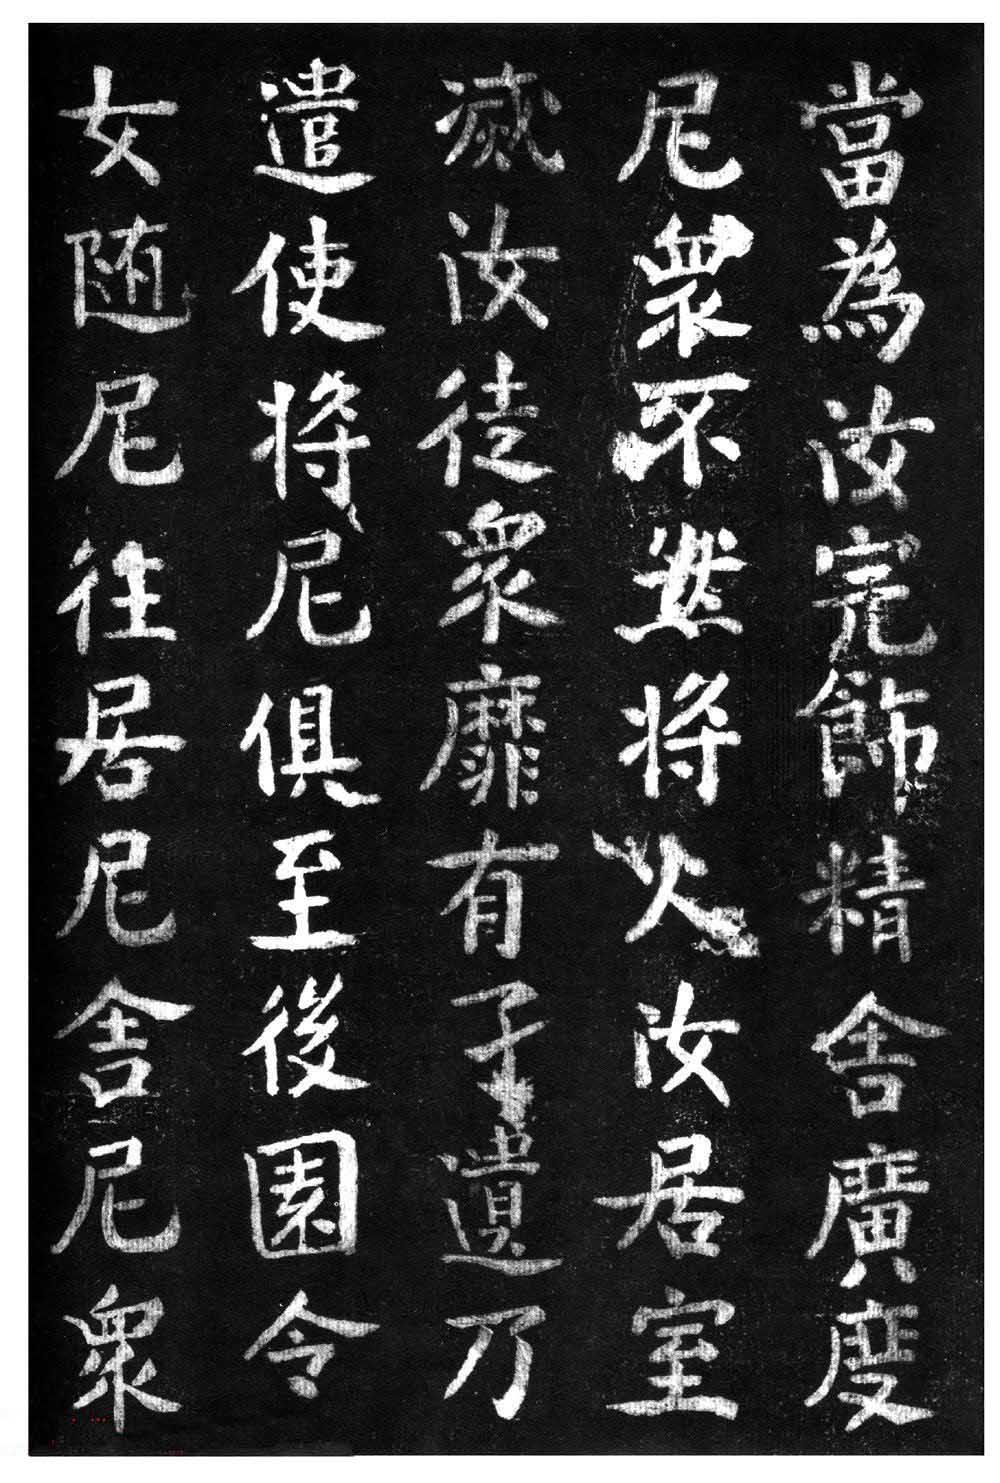 當為汝完飾精舍廣度
尼眾不然將火汝居室
滅汝徒眾靡有孑遺乃
遣使將尼俱至後園令
女随尼往居尼舍尼眾